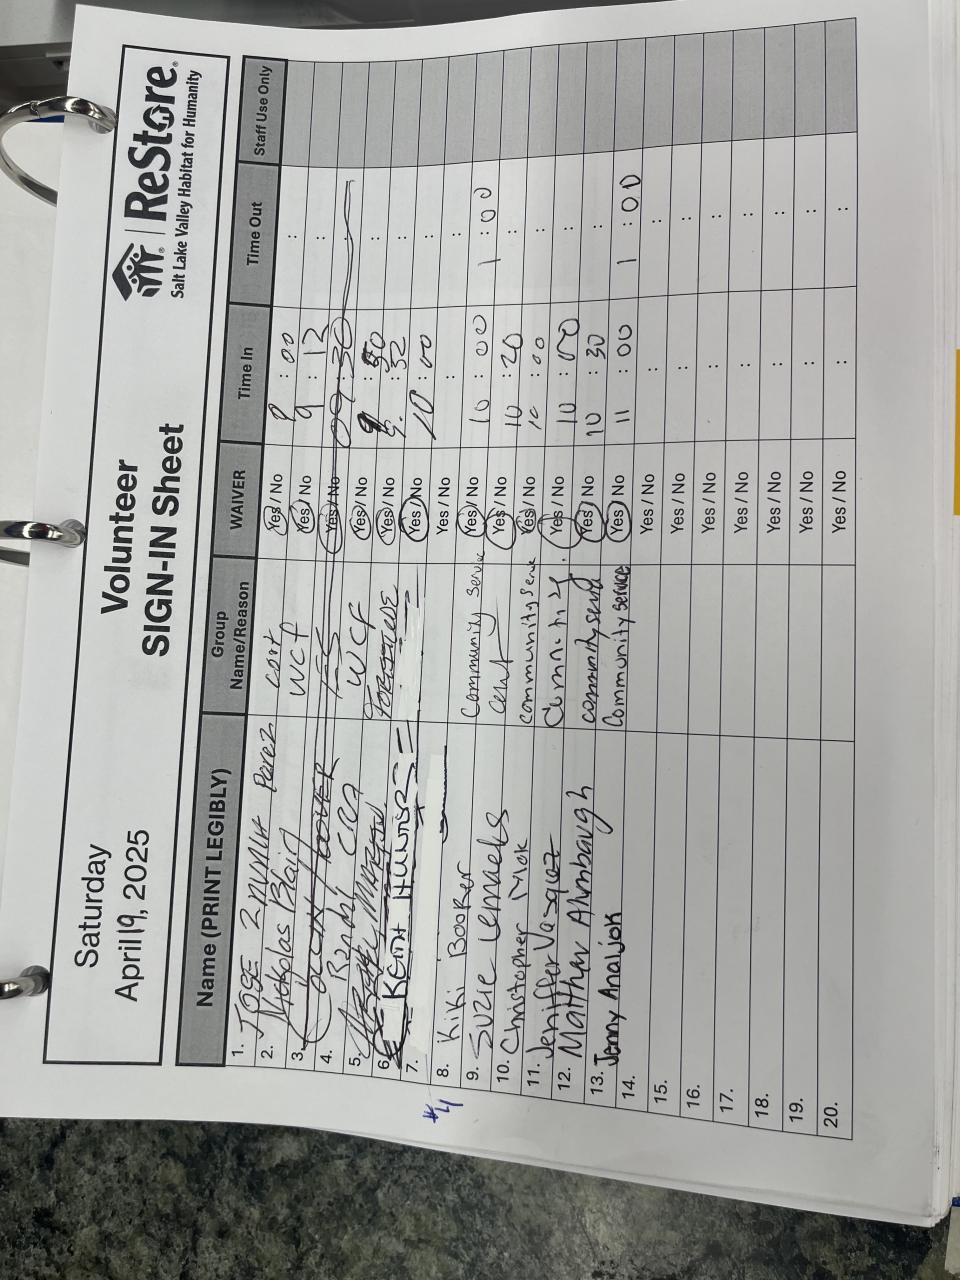 Saturday
April 19, 2025
Volunteer
SIGN-IN Sheet
ReStore®
Salt Lake Valley Habitat for Humanity
Name (PRINT LEGIBLY) Group Name/Reason WAIVER Time In Time Out Staff Use Only
1. JOSE Perez Yes / No : 00 :
2. Nickolas Blain WCF Yes / No 9 : 12 :
3. Yes / No 09:30
4. Randy WCF Yes / No 9 : :
5. MARTIN Yes / No 9: 32 :
6. KENT Yes / No 10 : 00 :
7. Yes / No :
8. Kiki Booker Community Service Yes / No 10 : 00 1 : 00
9. Suzie Yes / No 10 : 20 :
10. Christopher Mok community Yes / No 10 : 00 :
11. Jeniffer Vasquez Yes / No 10 : 00 :
12. Matthew community Yes / No 10 : 30 :
13. Jenny Anaijok Community service Yes / No 11 : 00 1 : 00
14. Yes / No : :
15. Yes / No : :
16. Yes / No : :
17. Yes / No : :
18. Yes / No : :
19. Yes / No : :
20. Yes / No : :